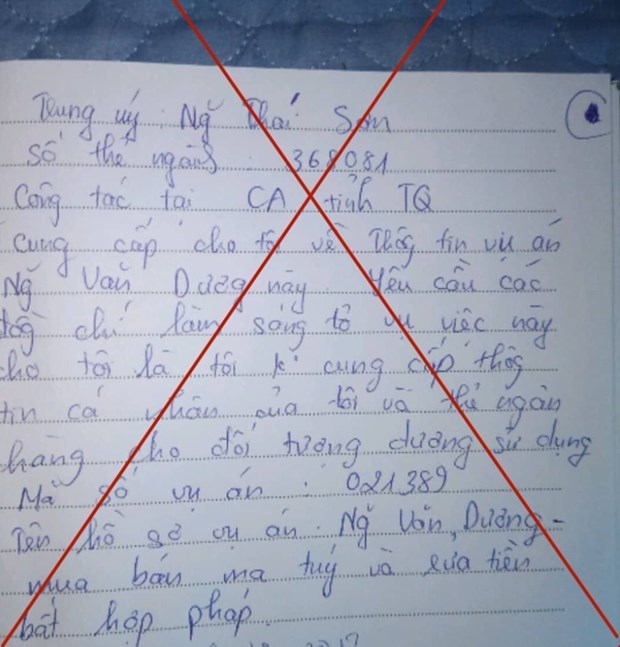 Trung úy : Ng̃ Thái Sơn
Số thẻ ngành : 368081
Công tác tại CA tỉnh TQ
Cung cấp cho tôi về thông tin vụ án
Ng̃ Văn Dương này. Yêu cầu các
đồng chí làm sáng tỏ vụ việc này
cho tôi là tôi k cung cấp thông
tin cá nhân của tôi và thẻ ngân
hàng cho đối tượng dương sử dụng
Mã số vụ án : 021389
Tên hồ sơ vụ án : Ng̃ Văn Dương -
mua bán ma tuý và rửa tiền
bất hợp pháp.